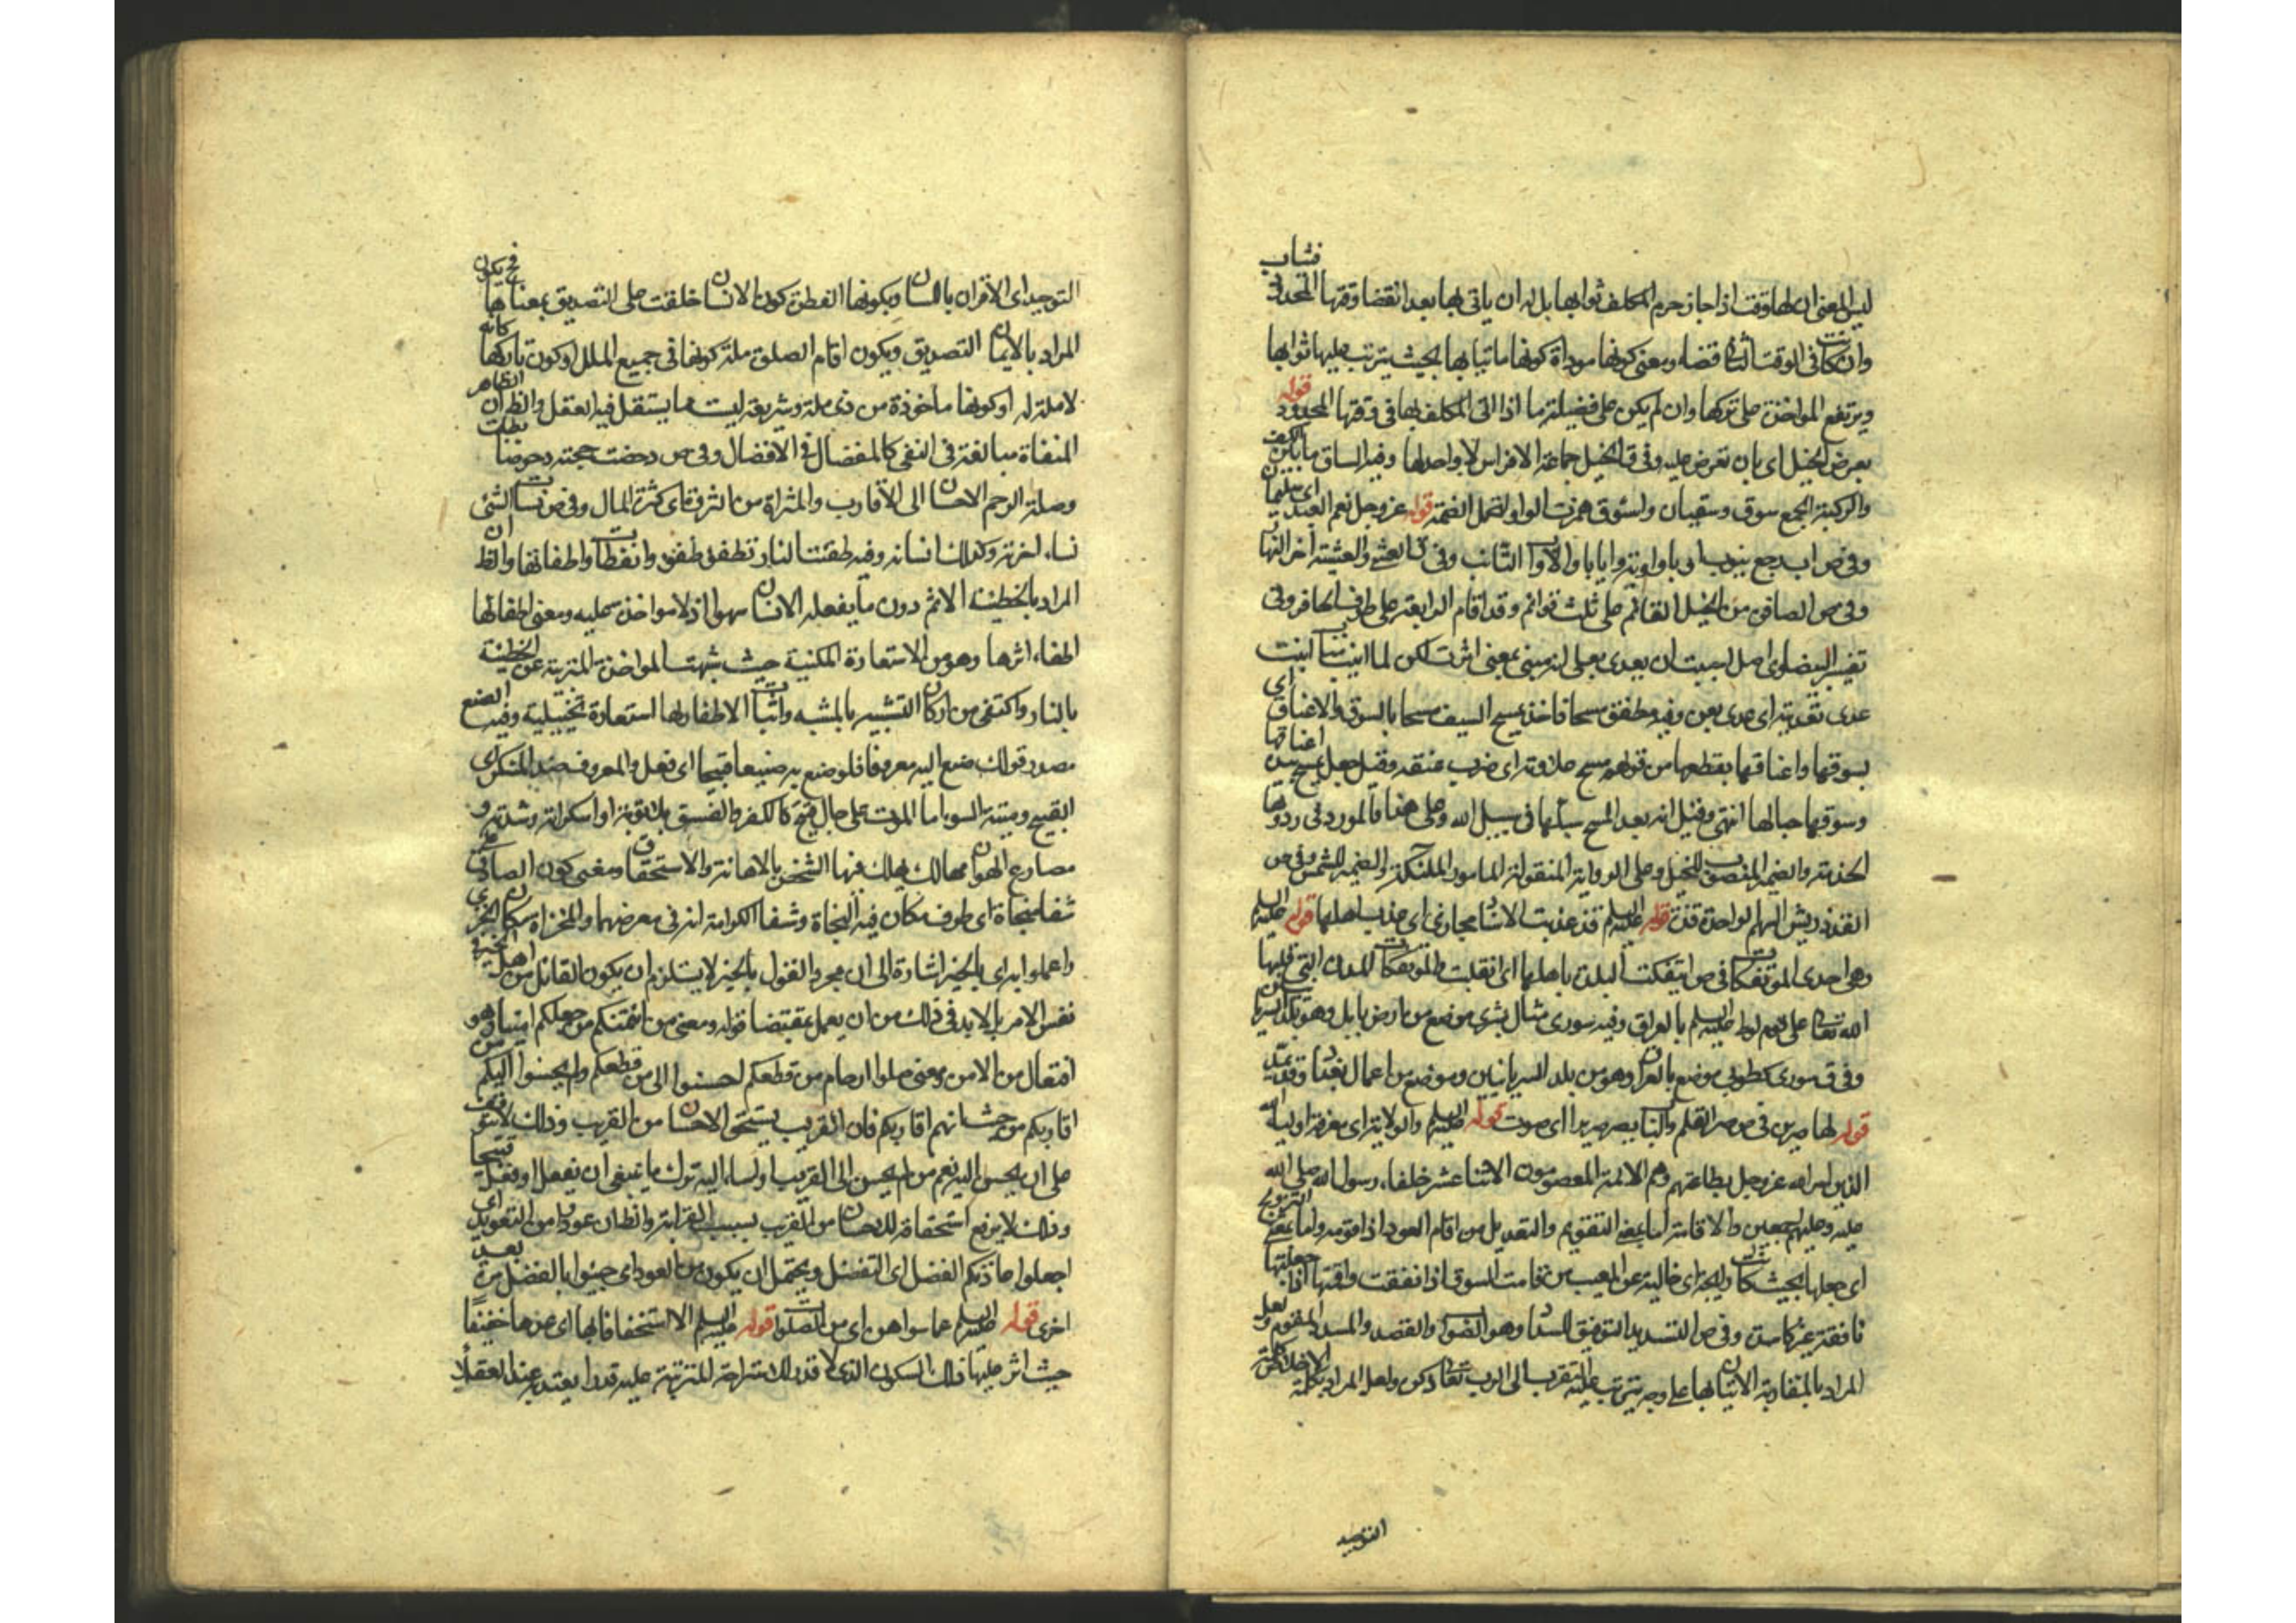 ليس المعنى ان لها وقت اذا جاز حرم المكلف ثوابها بل له ان ياتى بها بعد انقضا وقتها المحدود فيثاب
وان كانت فى الوقت الثانى قضاء ومعنى كونها موداة كونها ماتيا بها بحيث يترتب عليها ثوابها
ويرتفع المواخذة على تركها وان لم يكن على فضيلة ما اذا اتى المكلف بها فى وقتها المحدود قوله
بعرض الخيل اى بان تعرض عليه وفى ق الخيل جماعة الافراس لا واحد لها وفيه الساق ما بين الكعب
والركبة الجمع سوق وسيقان واسؤق همزت الواو لتحمل الضمة قوله عز وجل نعم العبد اى سليمان
وفى ص اب رجع يئوب اوبا واوبة وايابا والاواب التائب وفى ق العشى والعشية اخر النهار
وفى ص الصافن من الخيل القائم على ثلث قوائم وقد اقام الرابعة على طرف الحافر وفى
تفسير البيضاوى اصل احببت ان يعدى بعلى لانه مبنى بمعنى اثرت لكن لما انيب مناب انبت
عدى تعديته اى عدى بعن وفيه فطفق مسحا فاخذ يمسح السيف مسحا بالسوق والاعناق اى
بسوقها واعناقها يقطعها من قولهم مسح علاوته اى ضرب عنقه وقيل جعل يمسح بيده اعناقها
وسوقها حبا لها انتهى وقيل انه بعد المسح سبلها فى سبيل الله وعلى هذا فالمورد فى ردوها
القذذ ريش السهم الواحدة قذة قوله عليه السلم قد عذبت الاسناد مجازى اى عذب اهلها قوله عليه السلم
وهى احدى المؤتفكات فى ص ائتفكت البلدة باهلها اى انقلبت والمؤتفكات المدن التى قلبها
الله تعالى على قوم لوط عليه السلم بالعراق وفيه سورى مثال بشرى موضع من ارض بابل وهو بلد السريانيين
وفى ق سورى كطوبى موضع بالعراق وهو من بلد السريانيين وموضع من اعمال بغداد وقد يمد
قوله لها صرير فى ص صر القلم والباب يصر صريرا اى صوت قوله عليه السلم والولاية اى معرفة اولياء الله
الذين امر الله عز وجل بطاعتهم وهم الائمة المعصومون الاثنا عشر خلفاء رسول الله صلى الله
عليه وعليهم اجمعين والاقامة اما بمعنى التقويم والتعديل من اقام العود اذا قومه واما بمعنى الترويج
اى جعلها بحيث كانت رايجة اى خالية عن العيب من قامت السوق اذا نفقت واقمتها اذا جعلتها
نافقة غير كاسدة وفى ص التسديد التوفيق للسداد وهو الصواب والقصد والمسدد المقوم ولعل
المراد بالمقاربة الاتيان بها على وجه يترتب عليه التقرب الى الرب تعالى ذكره ولعل المراد بكلمة الاخلاص كلمة
التوحيد
التوحيد اى الاقرار باللسان وبكونها الفطرة كون الانسان خلقت على التصديق بمعناها فح يكون
المراد بالايمان التصديق وبكون اقام الصلوة ملة كونها فى جميع الملل او كون تاركها كانه
لا ملة له او كونها ماخوذة من ذى ملة وشريعة ليست مما يستقل فيه العقل والظاهر ان
المنفاة مبالغة فى النفى كالمفضال فى الافضال وفى ص دحضت حجته دحوضا بطلت
وصلة الرحم الاحسان الى الاقارب والمثراة من الثروة اى كثرة المال وفى ص نسات الشئ
نساء اخرته وكذلك انساته وفيه طفئت النار تطفئ طفوء وانفطات واطفاتها والظ ان
المراد بالخطيئة الاثم دون ما يفعله الانسان سهوا اذ لا مواخذة عليه ومعنى اطفائها
اطفاء اثرها وهو من الاستعارة المكنية حيث شبهت المواخذة المترتبة عن الخطيئة
بالنار واكتفى من اركان التشبيه بالمشبه واثبات الاطفاء لها استعارة تخييلية وفيه الصنع
مصدر قولك صنع اليه معروفا فلو صنع به صنيعا قبيحا اى فعل والمعروف ضد المنكر اى
القبيح وميتة السوء اما الموت على حال قبيح كالكفر والفسق بلا توبة او اسكراته وشدته و
مصارع الهوان مهالك يهلك فيها الشخص بالاهانة والاستحقاق ومعنى كون الصادق على
شفا منجاة اى طرف مكان فيه النجاة وشفا الكرامة انه فى معرضهما والمخزاة مكان الخزى
واعملوا به اى بالخير اشارة الى ان مجرد القول بالخير لا يستلزم ان يكون القائل من اهل الخير فى
نفس الامر بل لا بد فى ذلك من ان يعمل بمقتضا قوله ومعنى من ائتمنكم من جعلكم امينا وهو
افتعال من الامن ومعنى صلوا ارحام من قطعكم احسنوا الى من قطعكم ولم يحسنوا اليكم من
اقاربكم من حيث انهم اقاربكم فان القريب يستحق الاحسان من القريب وذلك لا يتوقف
على ان يحسن اليه نعم من لم يحسن الى القريب او اساء اليه ترك ما ينبغى ان يفعل او فعل قبيحا
وذلك لا يرفع استحقاقه للاحسان من القرب بسبب القرابة والظ ان عودوا من التعويد اى
اجعلوا عادتكم الفضل اى التفضل ويحتمل ان يكون من العود اى جيئوا بالفضل مرة بعد
اخرى قوله عليه السلم عما سواهن اى من الصلوات قوله عليه السلم الا استخفافا بها اى عدها خفيفا
حيث اثر عليها ذلك السكون الذى لا قدر لاستراحة المترتبة عليه قدرا يعتد به عند العقلا